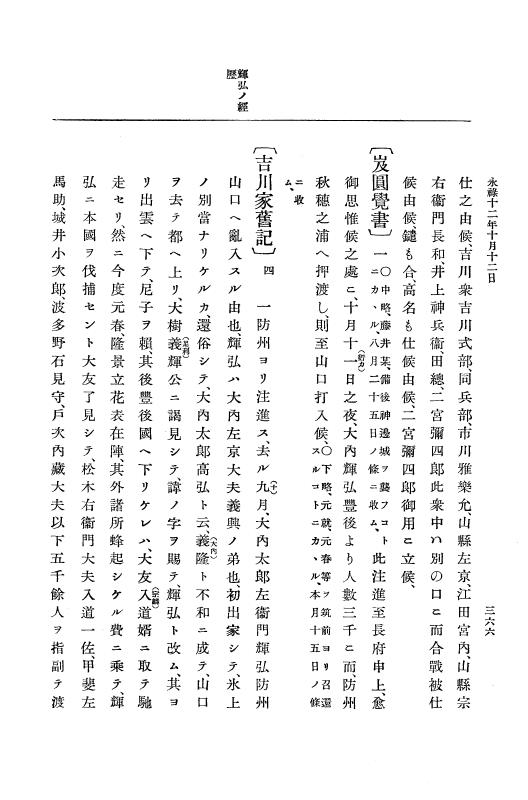 永祿十二年十月十二日
三六六
輝弘ノ經
歷
仕之由候、吉川衆吉川式部、同兵部、市川雅樂允、山縣左京、江田宮內、山縣宗
右衞門長和、井上神兵衞、田總、二宮彌四郎此衆中ハ別の口ニ而合戰被仕
候由候、鑓も合、高名も仕候由候、二宮彌四郎御用ニ立候、
〔岌圓覺書〕一〇中略、藤井某、備後神邊城ヲ襲フコトニカヽル、八月二十五日ノ條ニ收ム、此注進至長府申上、愈
御思惟候之處ニ、十月十一日之夜、大內輝弘豐後より人數三千ニ而、防州
秋穗之浦へ押渡し、則至山口打入候、〇下略、元就、元春等ヲ筑前ヨリ召還スルコトニカヽル、本月十五日ノ條
ニ收
ム、
〔吉川家舊記〕四 一防州ヨリ注進ス、去ル九月、(十)大內太郎左衞門輝弘防州
山口へ亂入スル由也、輝弘ハ大內左京大夫義興ノ弟也、初出家シテ、氷上
ノ別當ナリケルカ、還俗シテ、大內太郎高弘ト云、義隆(大內)ト不和ニ成テ、山口
ヲ去テ都へ上リ、大樹義輝公(足利)ニ謁見シテ、諱ノ字ヲ賜テ、輝弘ト改ム、其ヨ
リ出雲へ下テ、尼子ヲ賴、其後豐後國へ下リケレハ、大友入道(宗麟)婿ニ取テ馳
走セリ、然ニ今度元春、隆景立花表在陣、其外諸所蜂起シケル費ニ乘テ、輝
弘ニ本國ヲ伐捕セント大友了見シテ、松木右衞門大夫入道一佐、甲斐左
馬助、城井小次郎、波多野石見守、戶次內藏大夫以下五千餘人ヲ指副テ渡